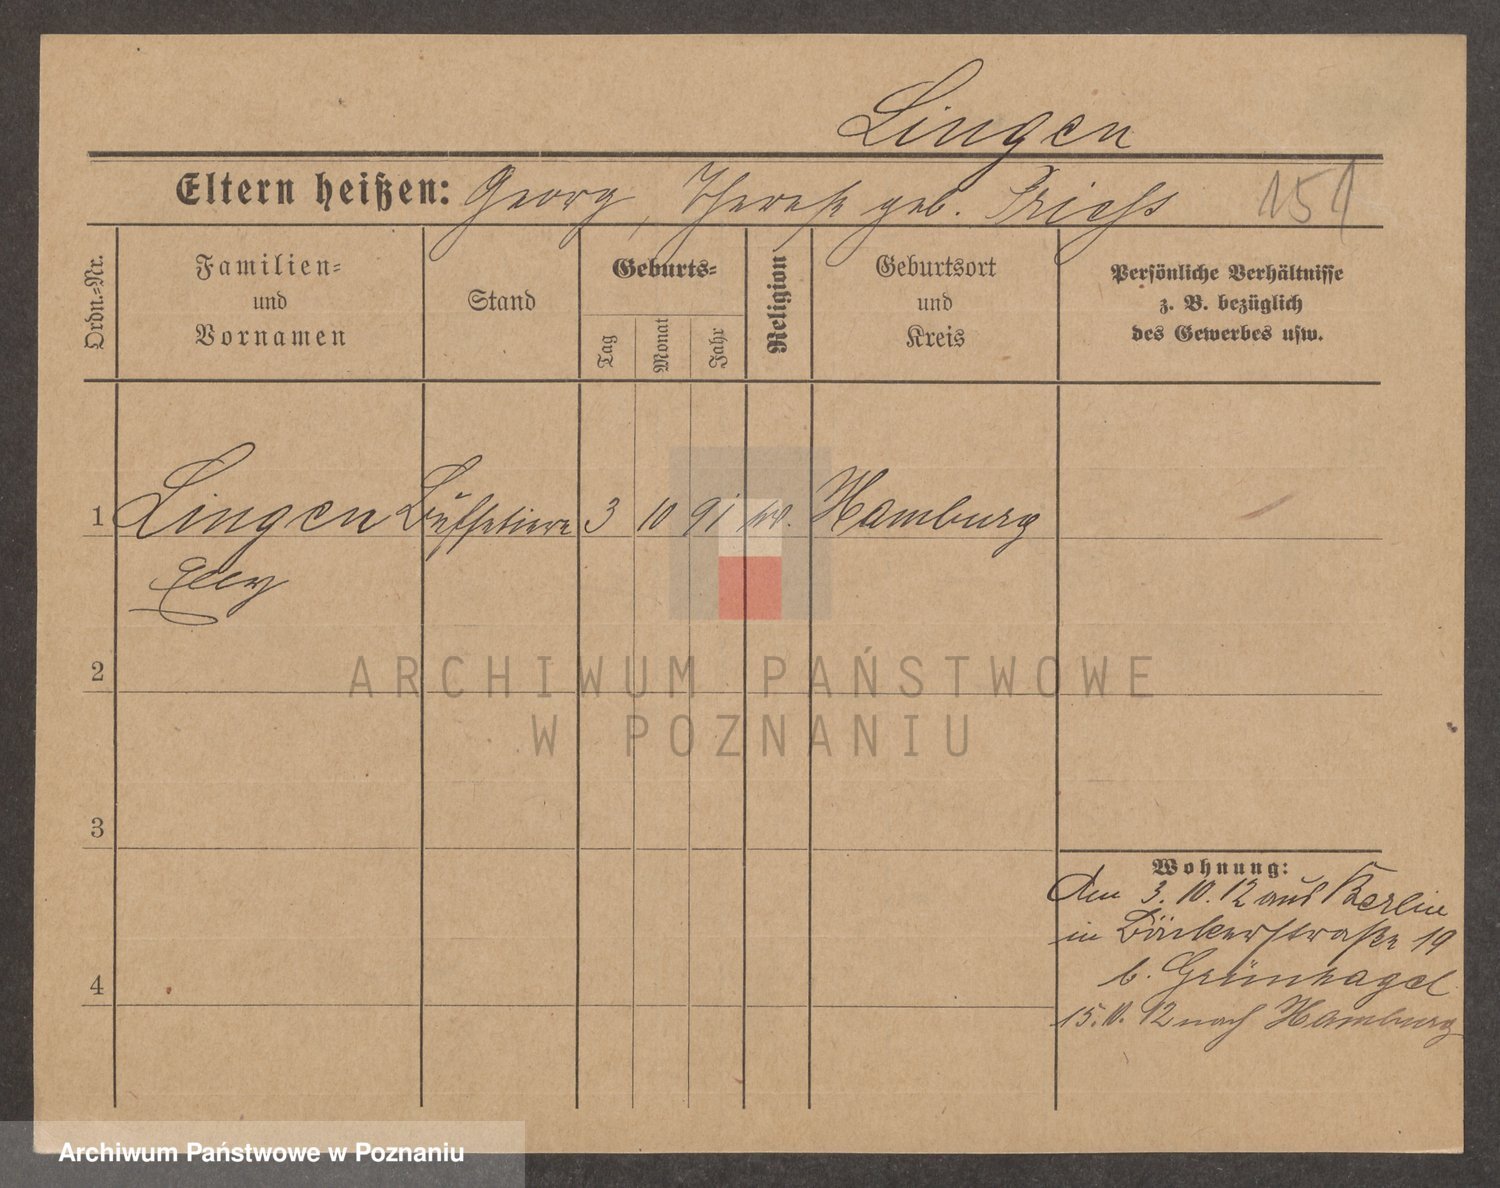 Lingen
Eltern heißen: Georg, Therese geb. 151
Ordn.-Nr.
Familien-
und
Vornamen
Stand
Geburts-
Tag
Monat
Jahr
Religion
Geburtsort
und
Kreis
Persönliche Verhältnisse
z. B. bezüglich
des Gewerbes usw.
1 Lingen Büffetiere 3 10 91 ev. Hamburg
Elly
2
3
4
Wohnung:
Am 3. 10. 12 aus Berlin
in Bäckerstraße 19
b. Grünhagel
15.10.12 nach Hamburg
ARCHIWUM PAŃSTWOWE
W POZNANIU
Archiwum Państwowe w Poznaniu